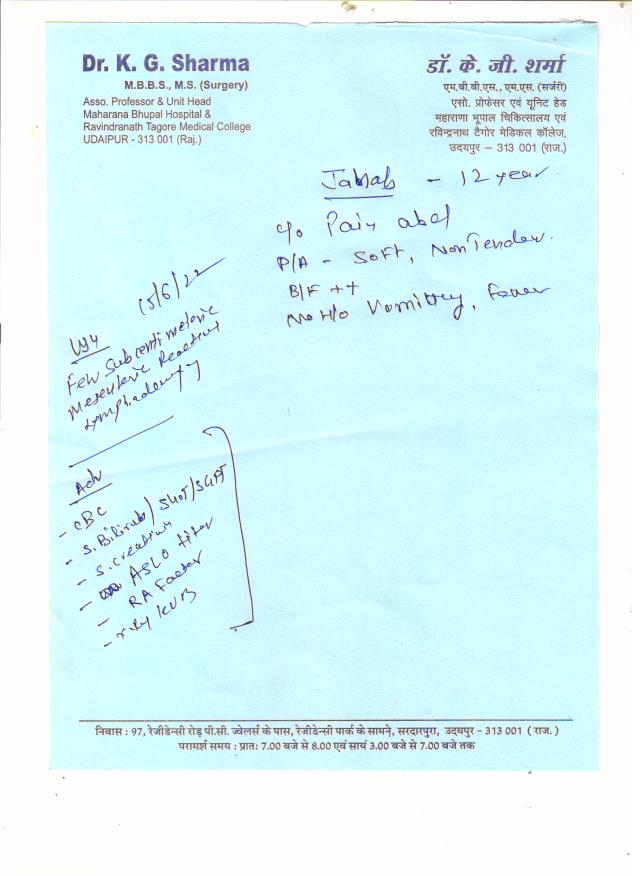 Dr. K. G. Sharma
M.B.B.S., M.S. (Surgery)
Asso. Professor & Unit Head
Maharana Bhupal Hospital &
Ravindranath Tagore Medical College
UDAIPUR - 313 001 (Raj.)
डॉ. के. जी. शर्मा
एम.बी.बी.एस., एम.एस. (सर्जरी)
एसो. प्रोफेसर एवं यूनिट हेड
महाराणा भूपाल चिकित्सालय एवं
रविन्द्रनाथ टैगोर मेडिकल कॉलेज,
उदयपुर – 313 001 (राज.)
- 12 year
c/o Pain abd
P/A - Soft, NonTender.
B/F ++
No H/o Vomitting, Fever
15/6/22
Few Subcentimeteric
Mesenteric Reactive
Lymphadenopathy
Adv
- CBC
- S. Bilirub/SGOT/SGPT
- S. Creatinine
- ASLO titer
- RA Factor
- X-Ray KUB
निवास : 97, रेजीडेन्सी रोड़ पी.सी. ज्वेलर्स के पास, रेजीडेन्सी पार्क के सामने, सरदारपुरा, उदयपुर - 313 001 ( राज. )
परामर्श समय : प्रातः 7.00 बजे से 8.00 एवं सायं 3.00 बजे से 7.00 बजे तक